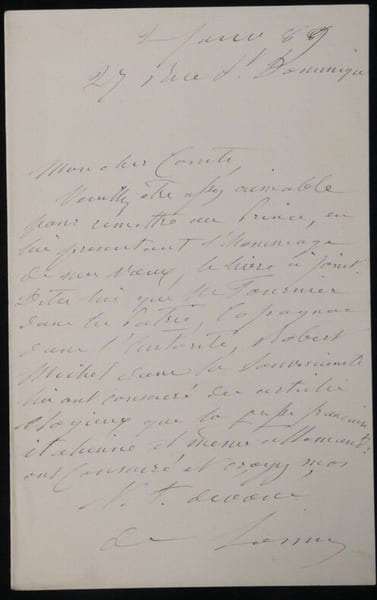 Janv 89
27 rue St Dominique
Mon cher Comte,
Veuillez être assez aimable
pour remettre au Prince, en
lui présentant l'hommage
de mes vœux, le livre ci joint.
Dites lui que Mr Fournier
dans la Patrie, Cassagnac
dans l'Autorité, Robert
Michel dans la Souveraineté
lui ont consacré des articles
élogieux que la presse française
italienne et même allemande
ont consacré et croyez moi
V. T. dévoué
de